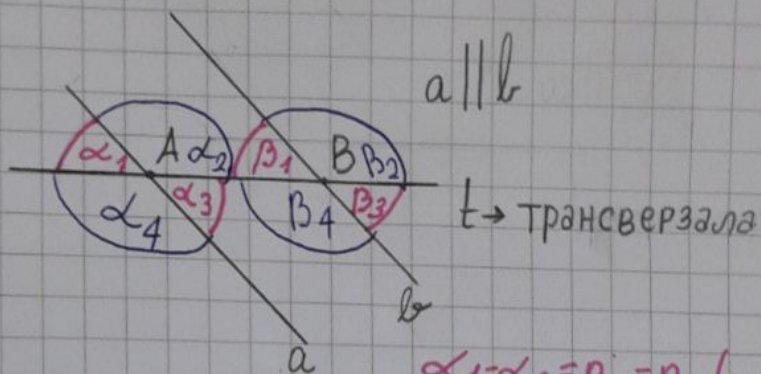 a||b
α₁ A α₂ β₁ B β₂
α₄ α₃ β₄ β₃
t → трансверзала
b
a